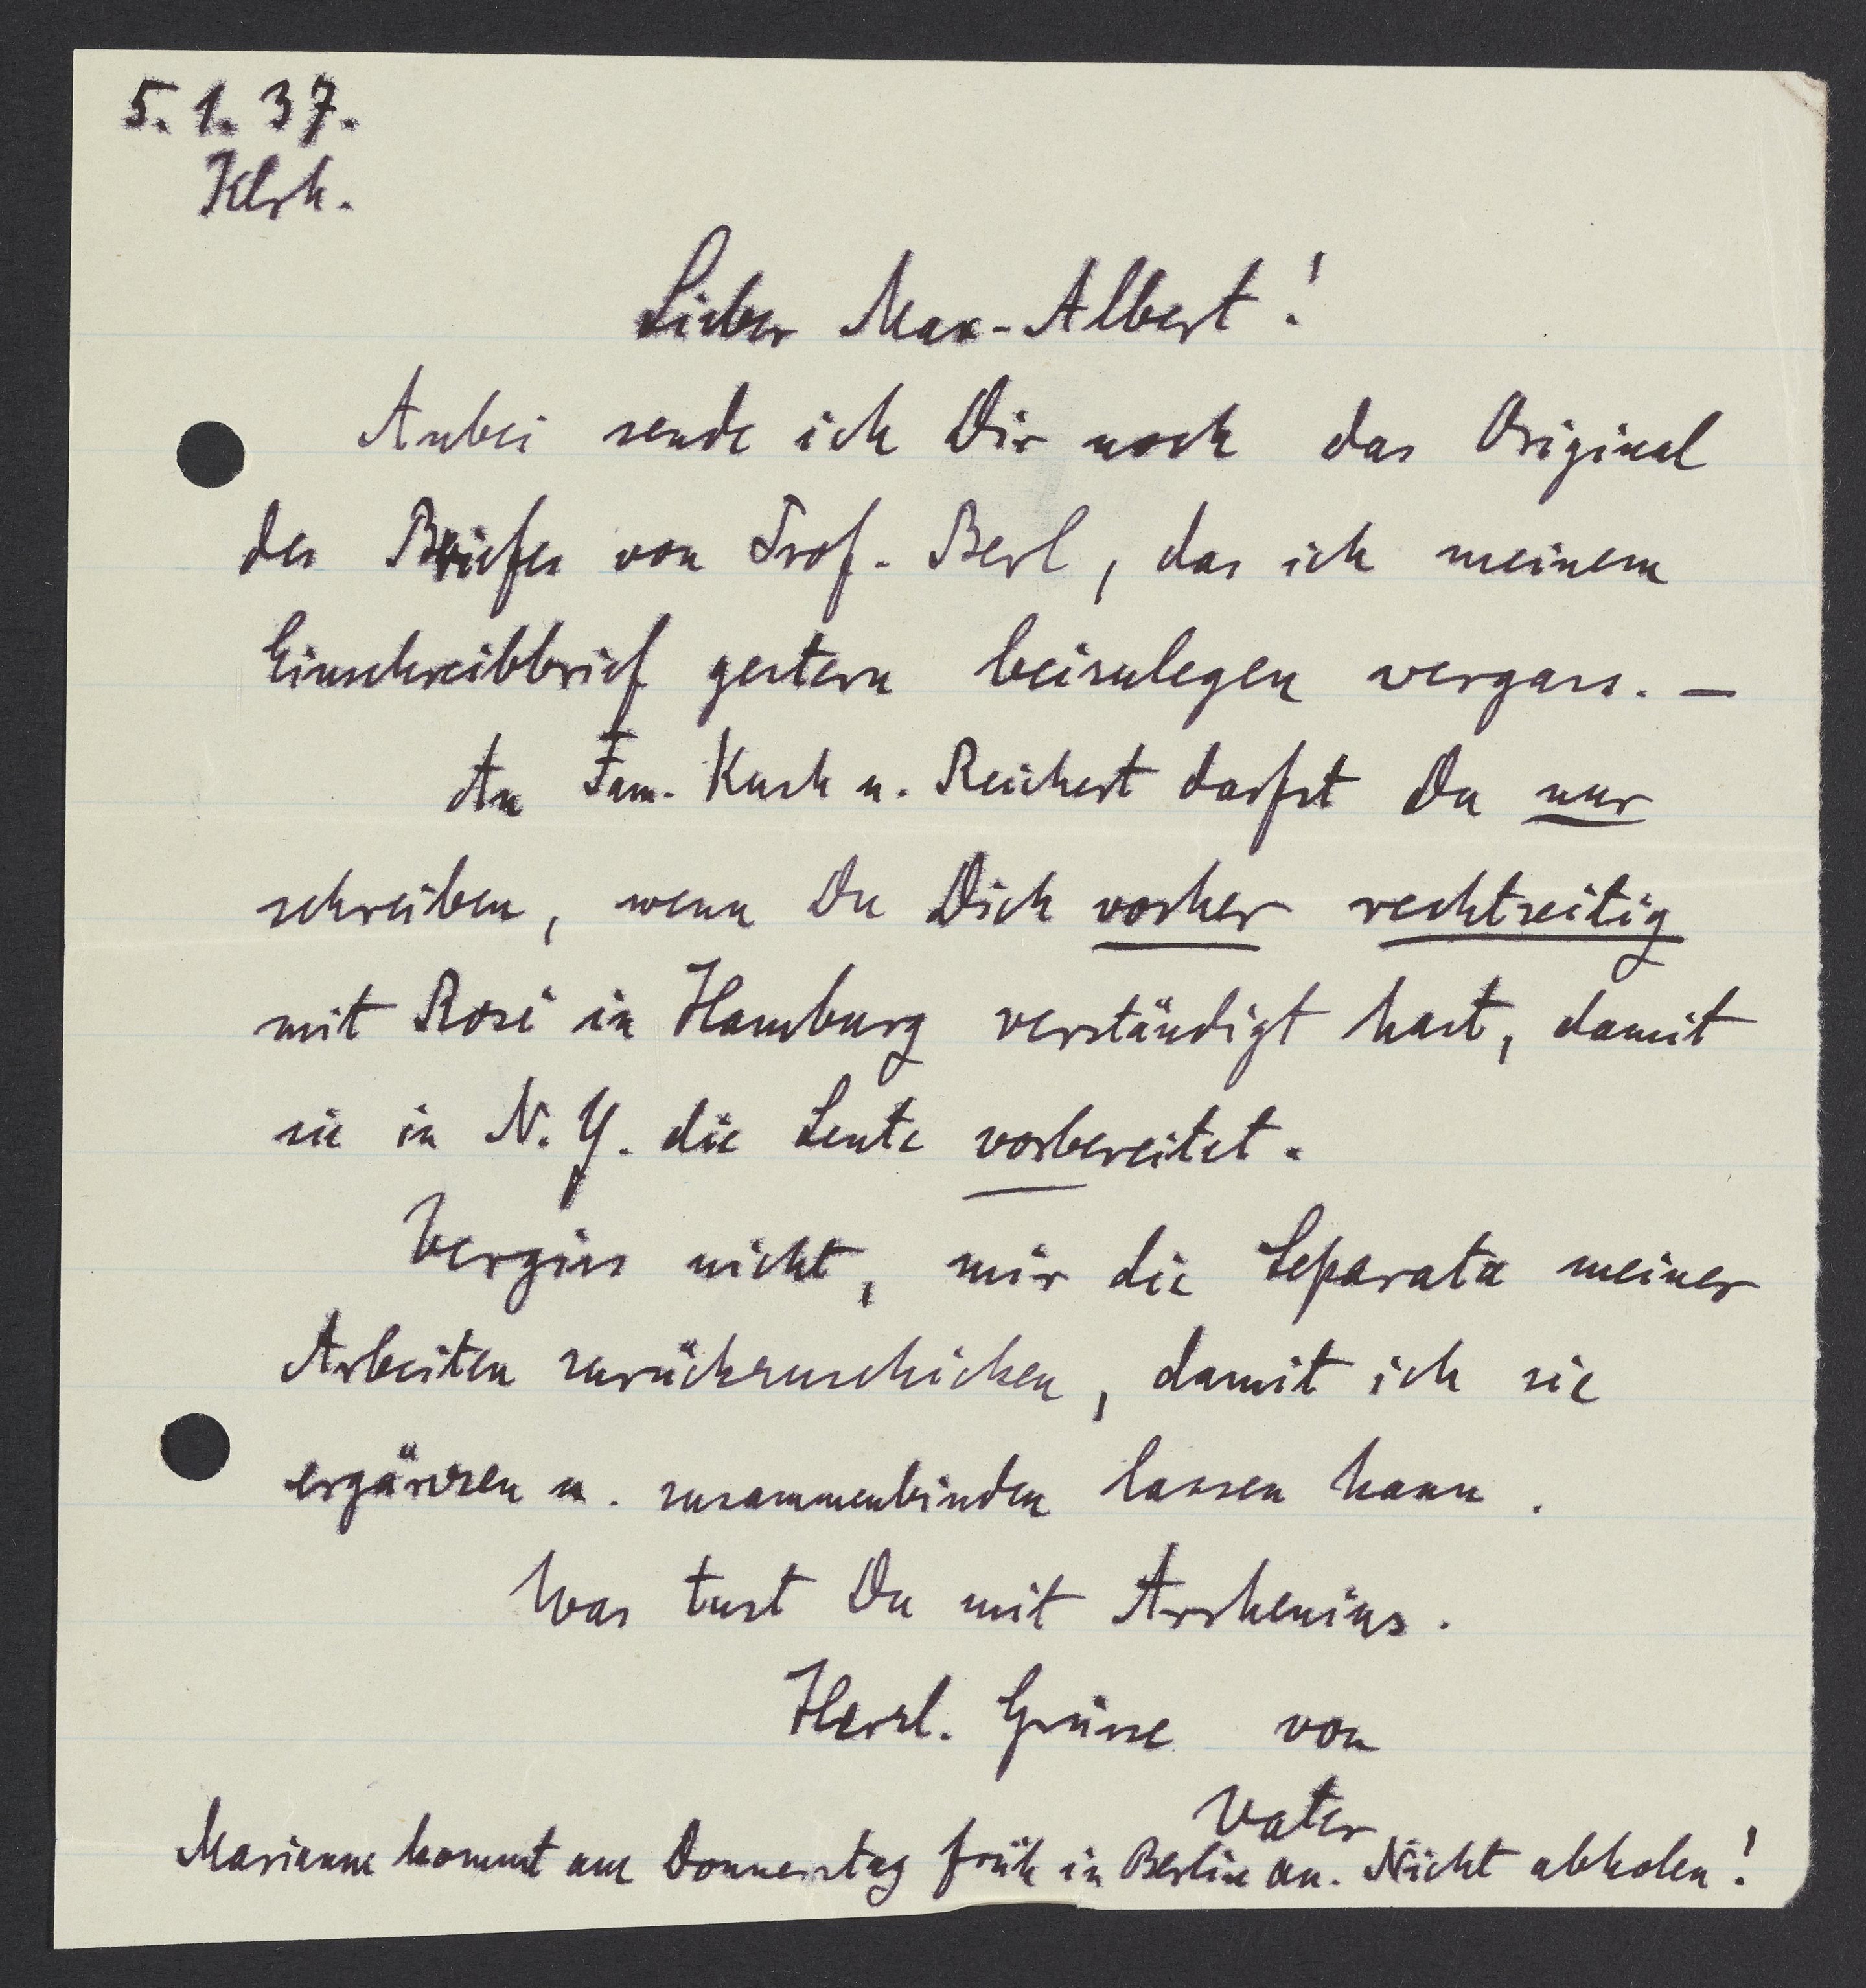 5. 1. 37.
Klrh.
Lieber Max-Albert!
Anbei sende ich Dir noch das Original
des Briefes von Prof. Berl, das ich meinem
Einschreibbrief gestern beizulegen vergass. —
An Fam. Kush u. Reichert darfst Du nur
schreiben, wenn Du Dich vorher rechtzeitig
mit Rosi in Hamburg verständigt hast, damit
sie in N. Y. die Leute vorbereitet.
Vergiss nicht, mir die Separata meiner
Arbeiten zurückzuschicken, damit ich sie
ergänzen u. zusammenbinden lassen kann.
Was tust Du mit Arrhenius.
Herzl. Grüsse von
Vater
Marianne kommt am Donnerstag früh in Berlin an. Nicht abholen!